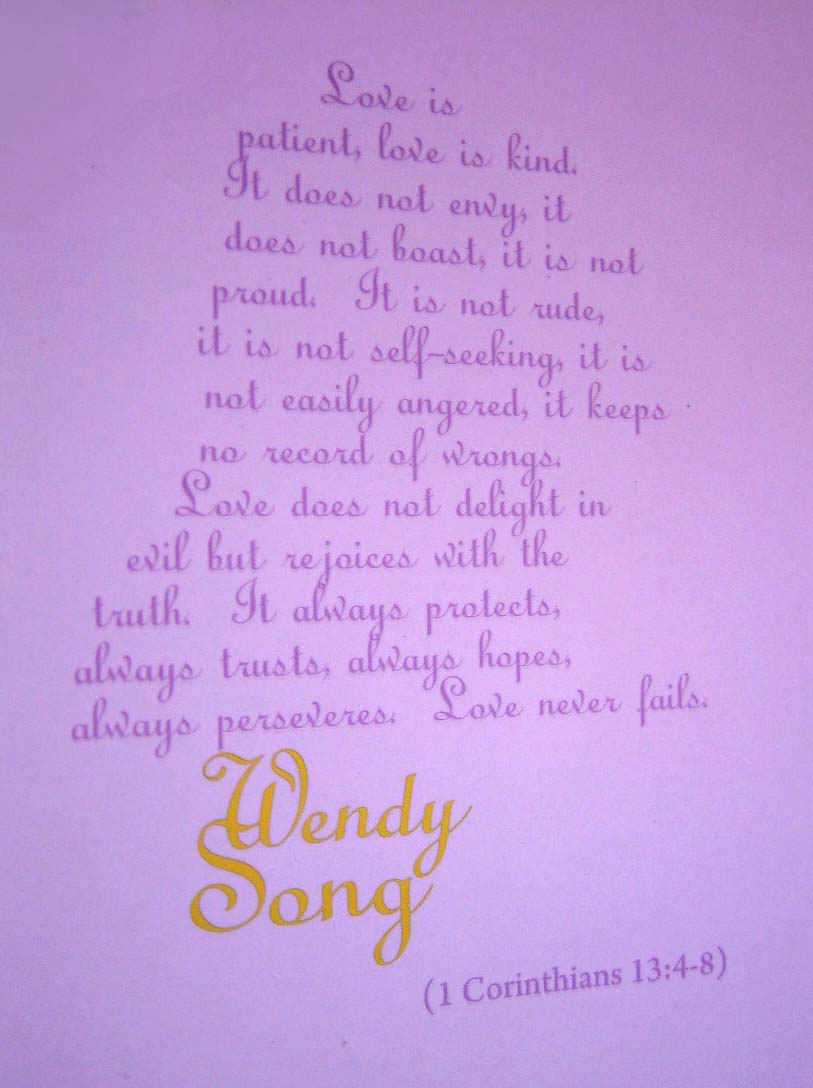 Love is
patient, love is kind.
It does not envy, it
does not boast, it is not
proud. It is not rude,
it is not self-seeking, it is
not easily angered, it keeps
no record of wrongs.
Love does not delight in
evil but rejoices with the
truth. It always protects,
always trusts, always hopes,
always perseveres. Love never fails.
Wendy
Song
(1 Corinthians 13:4-8)